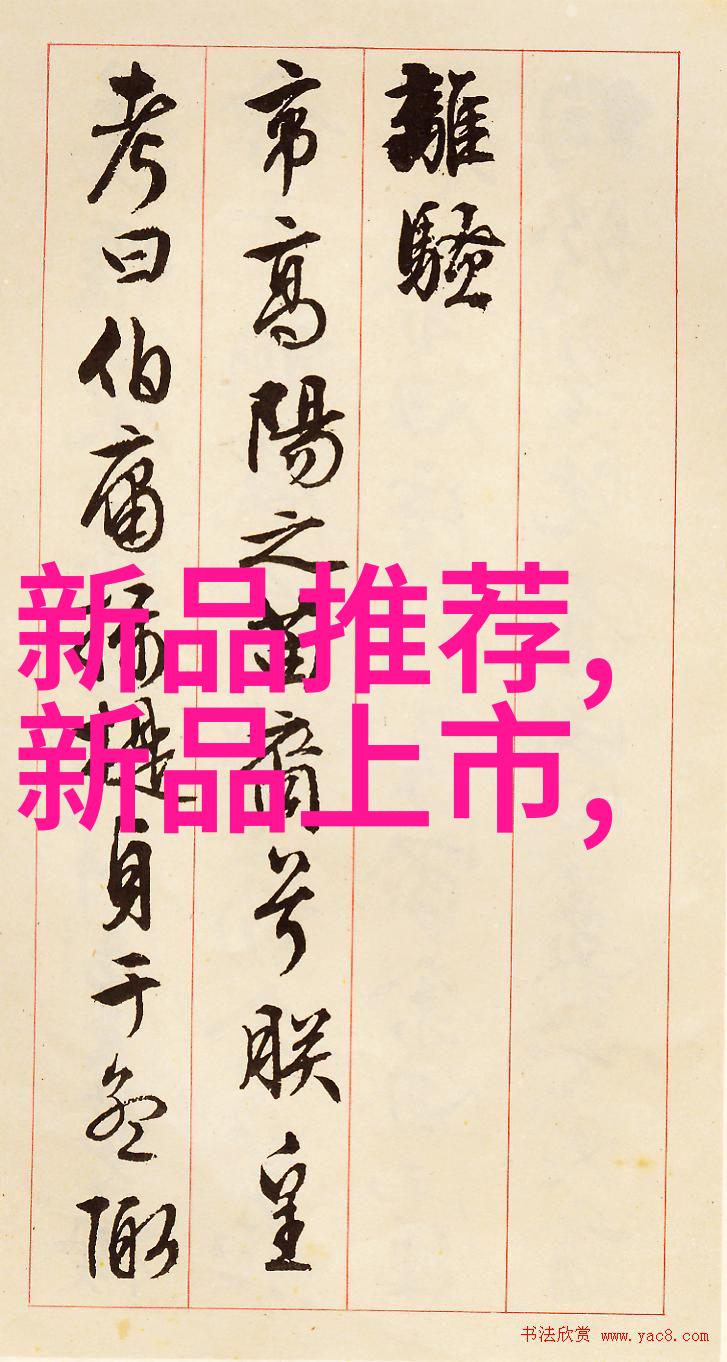 離騷
帝高陽之苗裔兮朕皇
考曰伯庸攝提貞于孟陬
新品推荐，
新品上市，
书法欣赏 www.yac8.com